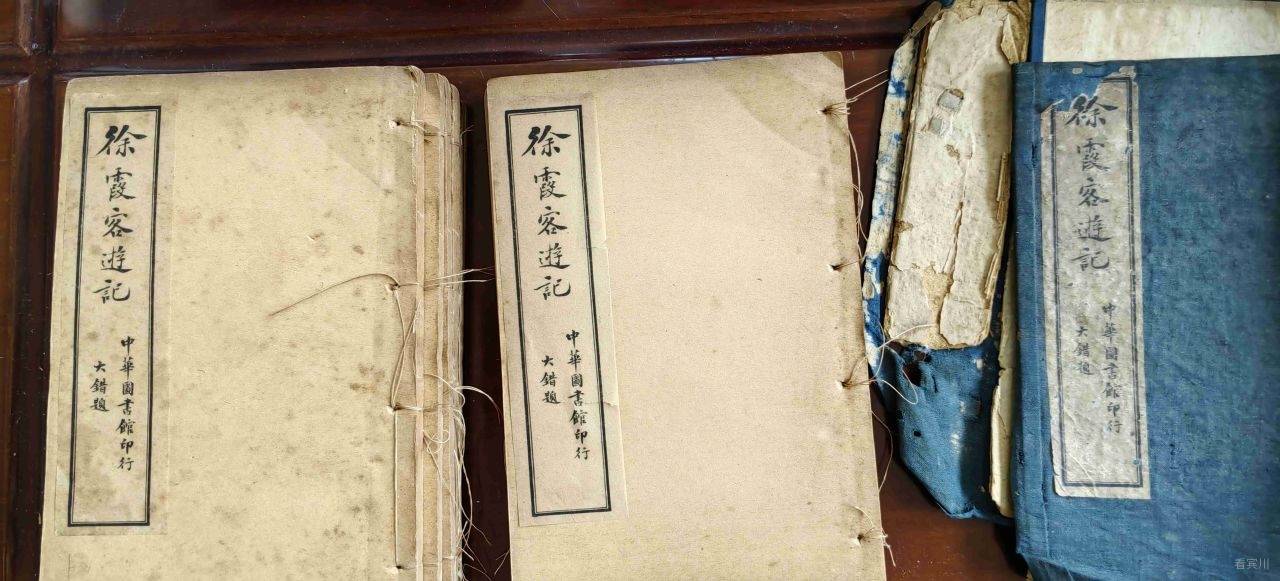 徐霞客遊記
中華圖書館印行
大錯題
徐霞客遊記
中華圖書館印行
大錯題
徐霞客遊記
中華圖書館印行
大錯題
看宾川